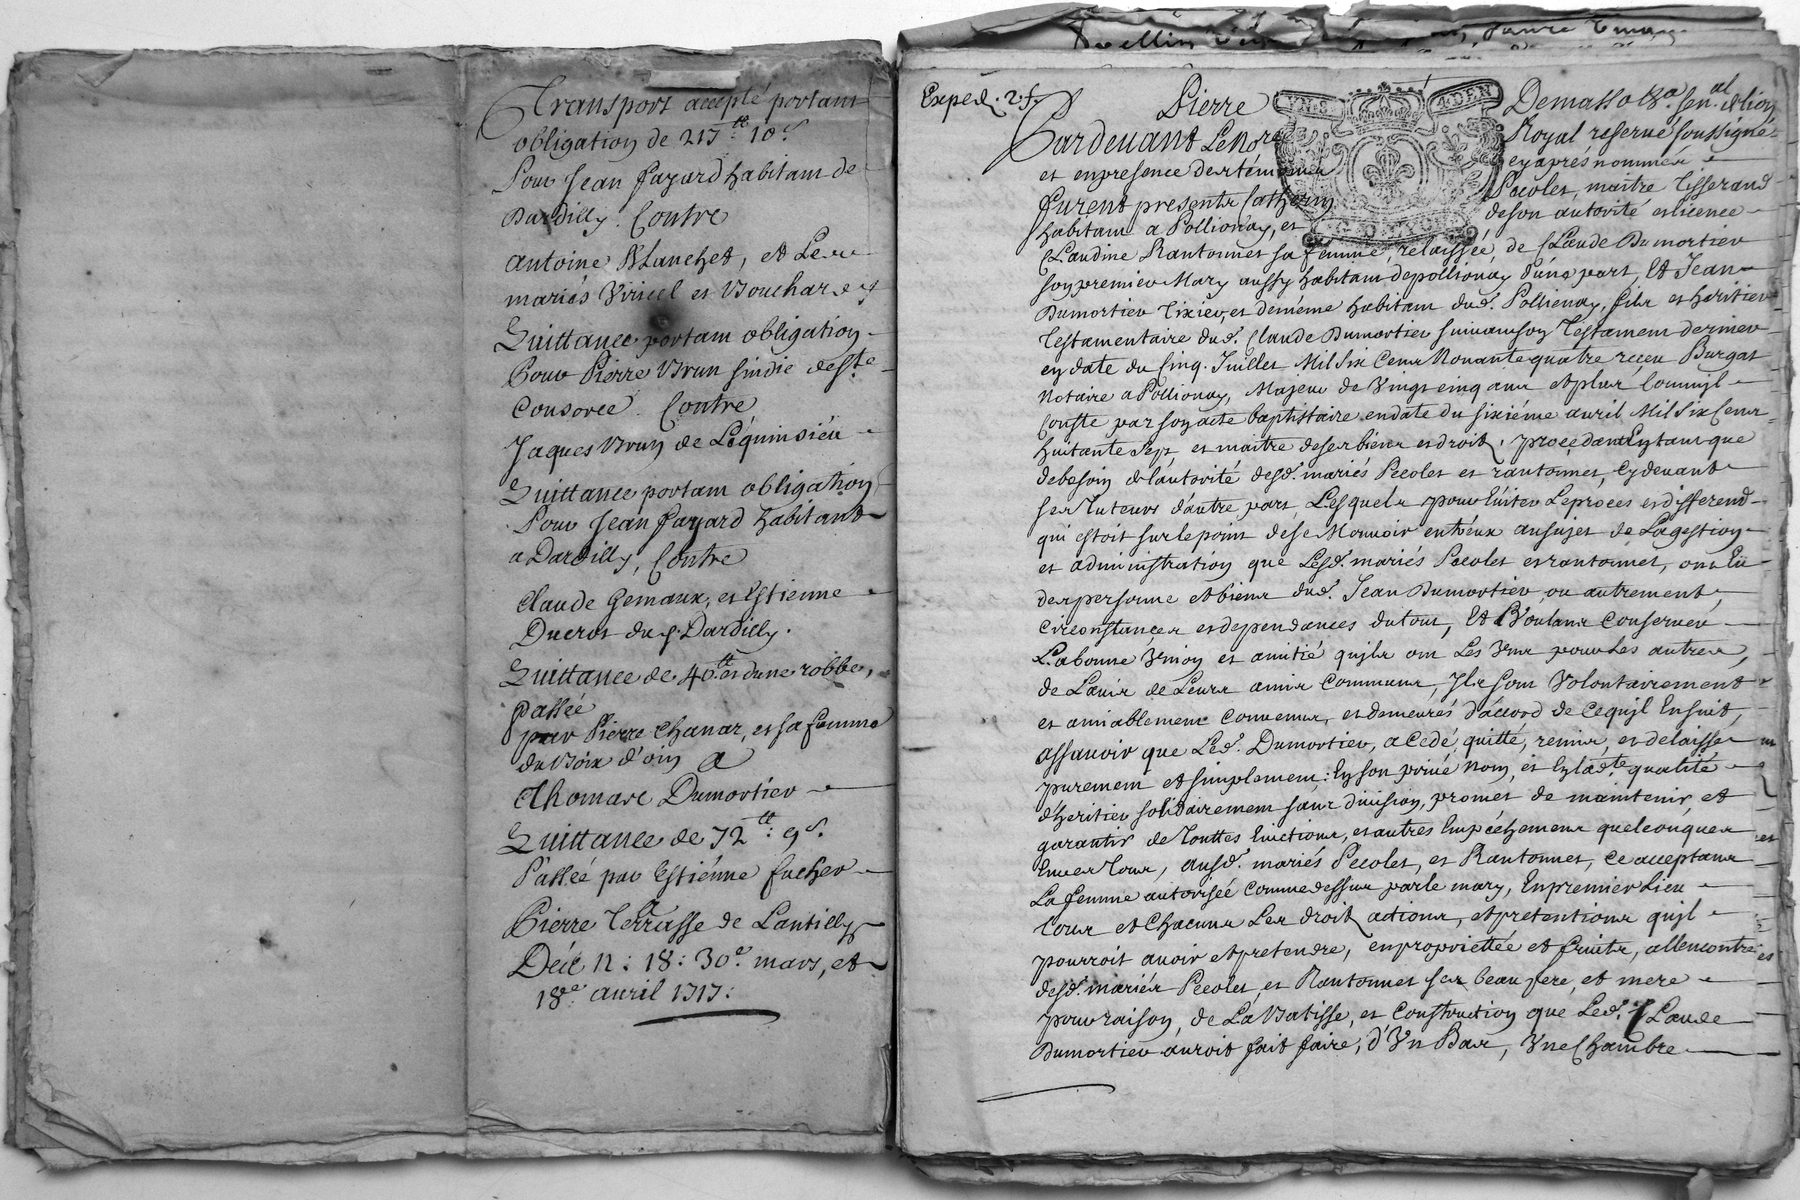 Transport accepté portant
obligation de 217tt: 10s
Pour Jean fayard habitant de
Dardilly. Contre
antoine Blanchet, et Les
mariés Viricel et Bouchard
Quittance portant obligation
Pour Pierre Brun sindic des
Consorcé. Contre
Jaques Brun de Lequinsieu
Quittance portant obligation
Pour Jean fayard habitant
a Dardilly, Contre
Claude Gemaux, et Estienne
Ducrot dud. Dardilly.
Quittance de 40tt et dune robbe,
Passée
par Pierre Chanar, et sa femme
du Bois d'oin A
Thomare Dumortier
Quittance de 72tt: 9s.
Passée par Estiénne fucher
Pierre Terrasse de Lantilly
Déc 12: 18: 30e mars, et
18e avril 1717:
Exped. 2.f.
Pierre Demasso sen.al de lion
Pardevant Le No.re Royal reservé soussigné
et en presence des témoins cy aprés nommés
furent presents Catherin Pecolet, maitre Tisserand
habitant a Pollionay, et de son autorité et licence
Claudine Rantonnet sa femme, relaissée, de Claude Dumortier
son premier Mary aussy habitant de pollionay d'une part, Et Jean
Dumortier Tixier, et deméme habitant dud. Pollionay, fils et heritier
Testamentaire dud. Claude Dumortier suivant son Testament dernier
en date du Cinq Juillet Mil Six Cent Nonante quatre reçeu Burgat
Notaire a Pollionay, Majeur de Vingt cinq ans et plus Comm'il
Conste par son acte baptistaire en date du sixiéme avril Mil Six Cent
huitante Sept, et maitre de ses biens et droits, procedant Entant que
de besoin de l'autorité desd. mariés Pecolet et rantonnet, Cy devant
ses Tuteurs d'autre part, Lesquels pour Eviter Le proces et differend
qui estoit sur le point de se Mouvoir entr'eux au sujet de La gestion
et administration que Lesd. mariés Pecolet et rantonnet, ont Eü
des personne et biens dud. Jean Dumortier, ou autrement,
circonstances et dependances du tout, Et Voulant Conserver
La bonne Vnion et amitié qu'ils ont Les Vns pour Les autres,
de L'avis de Leurs amis Communs, Ils sont Volontairement
et amiablement Convenus, et demeurés d'accord de Ce qu'il Ensuit,
assavoir que Led. Dumortier, a Cedé, quitté, remis, et delaisse
purement et simplement: En son privé Nom, et En lad.te qualité
d'heritier solidairement sans division, promet de maintenir, et
garantir de Touttes Evictions, et autres Empéchemens quelconques
Envers Tous, ausd. mariés Pecolet, et Rantonnet, Ce acceptans
La femme autorisée Comme dessus par le mary, En premier Lieu
Tous et Chacuns Les droits actions, et pretentions qu'jl
pourroit avoir et pretendre, en propriettée et fruits, allencontre
desd. mariés Pecolet, et Rantonnet ses beau pere, et mere
pour raison, de La Batisse, et Construction que Led. Claude
Dumortier auroit fait faire, d'Vn Bas, Vne Chambre